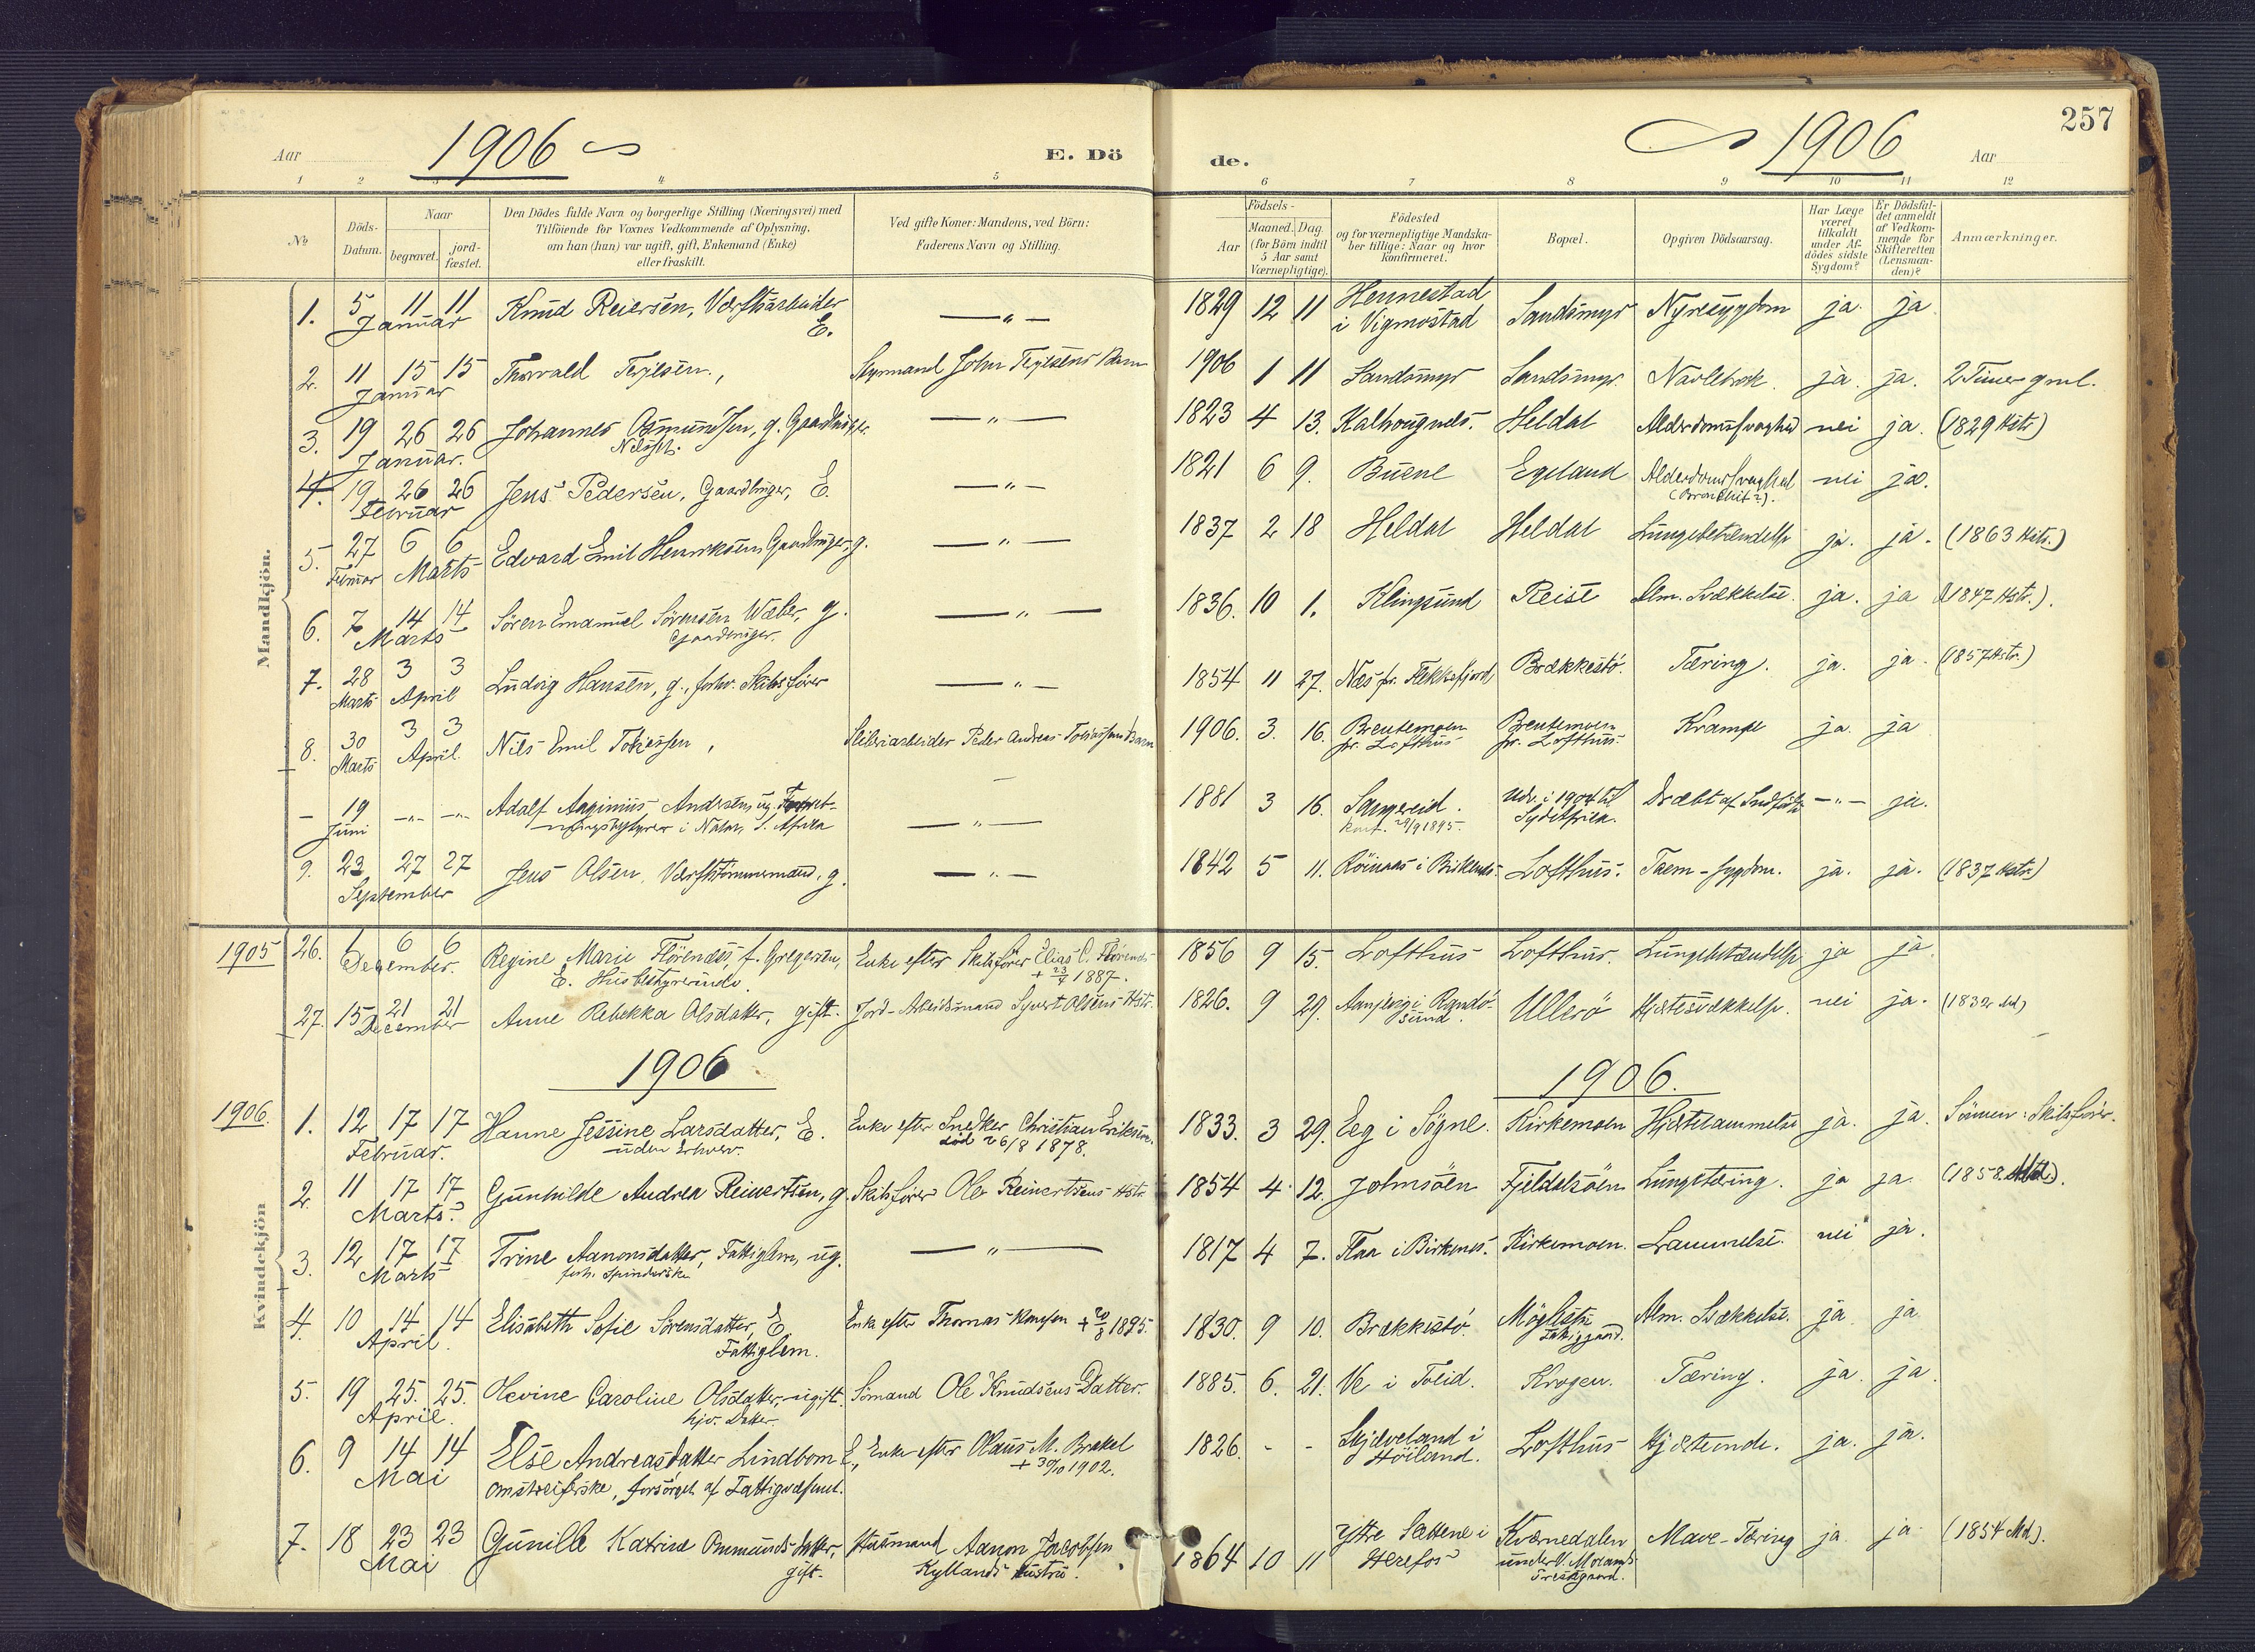 257
1906
1906
Aar
E. Dö
de.
Aar
1 2 3 4 5 6 7 8 9 10 11 12
№
Döds-
Datum.
Naar
begravet.
jord-
fæstet.
Den Dödes fulde Navn og borgerlige Stilling (Næringsvei) med
Tilföiende for Voxnes Vedkommende af Oplysning,
om han (hun) var ugift, gift, Enkemand (Enke)
eller fraskilt.
Ved gifte Koner: Mandens, ved Börn:
Faderens Navn og Stilling.
Födsels-
Aar
Maaned. Dag.
(for Börn indtil
5 Aar samt
Værnepligtige).
Födested
og for værnepligtige Mandska-
ber tillige: Naar og hvor
konfirmeret.
Bopæl.
Opgiven Dödsaarsag.
Har Læge
været
tilkaldt
under Af-
dödes sidste
Sygdom?
Er Dödsfal-
det anmeldt
af Vedkom-
mende for
Skifteretten
(Lensman-
den)?
Anmærkninger.
Mandkjön.
1. 5 11 11 Knud Reiersen, Værftsarbeider — " — 1829 12 11 Hennestad Sandsmyr Nyresygdom ja. ja
Januar E. i Vigmostad
2. 11 15 15 Thorvald Terjesen, Styrmand John Terjesens Barn 1906 1 11 Sandsmyr Sandsmyr. Navlebrok. ja. ja. 2 Timer gml.
Januar
3. 19 26 26 Johannes Osmundsen, g. Gaardbruger. — " — 1823 4 13. Kalhougnes. Heldal Alderdomssvaghed nei ja. (1829 Hstr)
Januar.
4. 19 26 26 Jens Pedersen, Gaardbruger, E. — " — 1821 6 9. Buene Egeland Alderdomssvaghed nei ja.
Februar (Bronchit?).
5. 27 6 6 Edvard Emil Henriksen, Gaardbruger, g. — " — 1837 2 18 Heldal Heldal Lungebetændelse ja. ja. (1863 Hstr.)
Februar Marts
6. 7 14 14 Sören Emanuel Sörensen Wæber, g. — " — 1836. 10 1. Klingsund Reise Alm. Svækkelse. ja. ja (1847 Hstr.).
Marts Gaardbruger.
7. 28 3 3 Ludvig Hansen, g., forhv. Skibsförer — " — 1854 11 27. Næs pr. Flekkefjord Brækkestö. Tæring. ja. ja. (1857 Hstr.)
Marts April
8. 30 3 3 Nils Emil Tobiassen, Sliberiarbeider Peder Andreas Tobiassens Barn 1906. 3. 16. Brentemoen Brentemoen Krampe ja. ja
Marts April. pr. Lofthus pr. Lofthus.
— 19 -"- -"- Adolf Anginius Andersen, ug. — " — 1881 3 16. Sangereid. Udv. i 1904 til Dræbt af Indfödte -"- ja.
Juni i Natal, S. Afrika Konf. 29/9 1895. Syd Afrika.
9. 23 27 27 Jens Olsen, Værftstömmermand, g. — " — 1842 5 11. Röinaas i Birkenes. Lofthus. Tarm-sygdom. ja. ja. (1837 Hstr.)
September
Kvindekjön
1905 26. 1 6 6 Regine Marie Flörendes, f. Gregersen, Enke efter Skibsförer Elias C. Flörendes 1856 9 15. Lofthus Lofthus. Lungebetændelse ja ja.
December. E. Husbestyrerinde. + 23/7 1887.
27. 15 21 21 Anne Rebekka Olsdatter, gift. Jord-Arbeidsmand Syvert Olsens Hstr. 1826. 9 29. Aanjesvig i Randö- Ullerö Hjertesvækkelse. nei ja. (1832 Md)
December sund.
1906 1906.
1906. 1. 12 17 17 Hanne Jessine Larsdatter, E. Enke efter Snedker Christian Eriksen, 1833. 3 29. Eeg i Sögne. Kirkemoen Hjertelammelse ja. ja. Sönnen: Skibsförer.
Februar. uden Erhverv. död 26/8 1878.
2. 11 17 17 Gunhilde Andrea Reinertsen, g Skibsförer Ole Reinertsens Hstr. 1854 4 12. Johnsöen Fjeldalsöen Lungetæring. ja ja. (1858
Marts.
3. 12 17 17 Trine Aanonsdatter, Fattiglem, ug. — " — 1817 4 7. Flaa i Birkenes. Kirkemoen. Lammelse. nei ja.
Marts forh. Spinderske
4. 10 14 14 Elisabeth Sofie Sörensdatter, E Enke efter Thomas Knudsen + 20/3 1895. 1830. 9 10. Brækkestö. Möglestu Alm. Svækkelse. ja. ja.
April. Fattiglem. Fattiggaard.
5. 19 25. 25. Olevine Caroline Olsdatter, ugift. Sömand Ole Knudsens Datter. 1885. 6. 21. Ve i Tveid. Krogen. Tæring. ja. ja.
April. hjv. Datter.
6. 9 14 14 Else Andreasdatter Lindbom E, Enke efter Olaus M. Brekel 1826. - - Skjæveland i Lofthus Hjerteonde. ja. ja.
Mai omstreiferske, forsörget af Fattigvæsenet. + 30/10 1902. Höiland.
7. 18 23 23 Gunille Katrine Ommundsdatter, Husmand Aanon Jacobsen 1864 10 11 Ytre Lættene i Kvernedalen Mave-Tæring ja. ja. (1854 Md).
Mai gift. Kyllands Hustru. Herefos under V. Moland
Præstegaard.